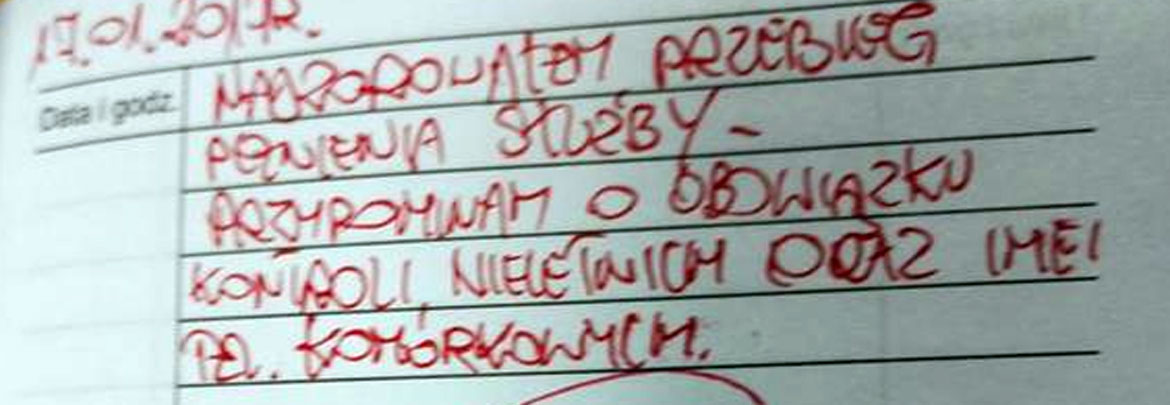 17.01.2017r.
Data i godz. NADZOROWAŁEM PRZEBIEG
PEŁNIENIA SŁUŻBY -
PRZYPOMINAM O OBOWIĄZKU
KONTROLI NIELETNICH ORAZ IMEI
TEL. KOMÓRKOWYCH.